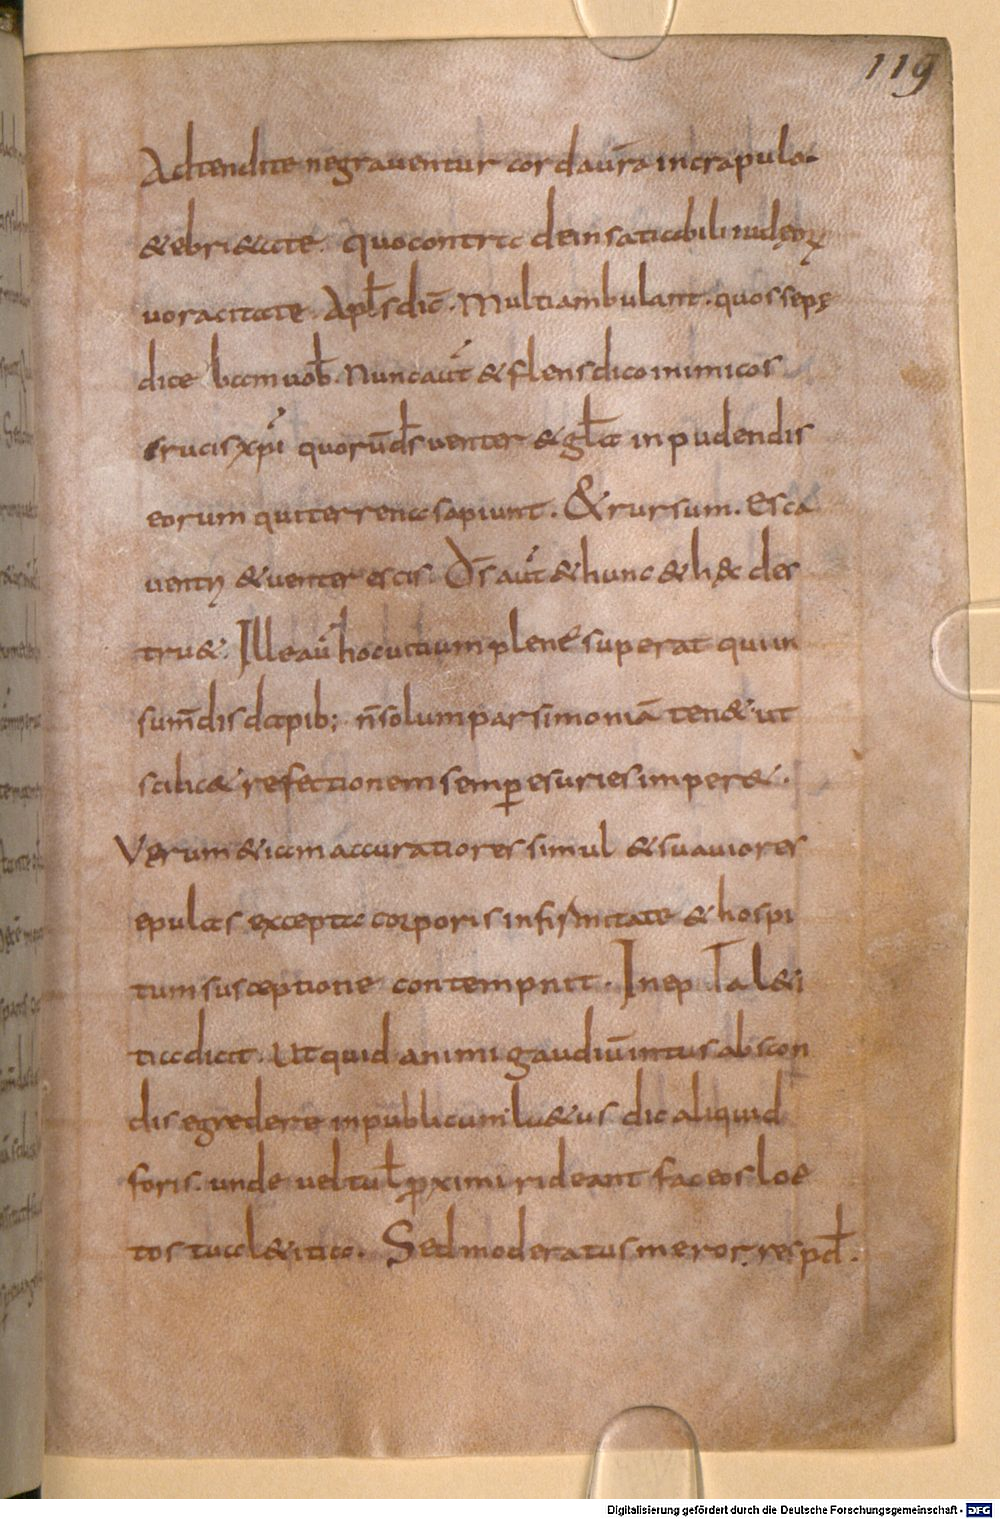 119
Adtendite ne graventur corda ur̄a in crapula.
& ebri&ate. quo contra de insatiabili iudęoꝝ
voracitate. Apl̄s dic̄. Multi ambulant. quos sepę
dicebam vob̄. Nunc aūt & flens dico inimicos
crucis xp̄i quorū d̄s venter & gl̄a in pudendis
eorum qui terrena sapiunt. & rursum. Esca
ventri & venter escis. D̄s aūt & hunc & hęc des
tru&. Ille aū hoc vitium plene superat qui in
sum̄dis dapib; n̄ solum parsimoniā ten& ut
scilic& refectionem semꝑ esuries imper&.
Verum &iam accuratiores simul & suaviores
epulas excepta corporis infirmitate & hospi
tum susceptione contempnit. Inep Ta l&i
tia dicit. Ut quid animi gaudiū intus abscon
dis egredere in publicum l&us dic aliquid
foris. unde vel tui ꝓximi rideant fac eos loe
tos tua l&itia. Sed moderatus meror. resp̄d.
Digitalisierung gefördert durch die Deutsche Forschungsgemeinschaft - DFG